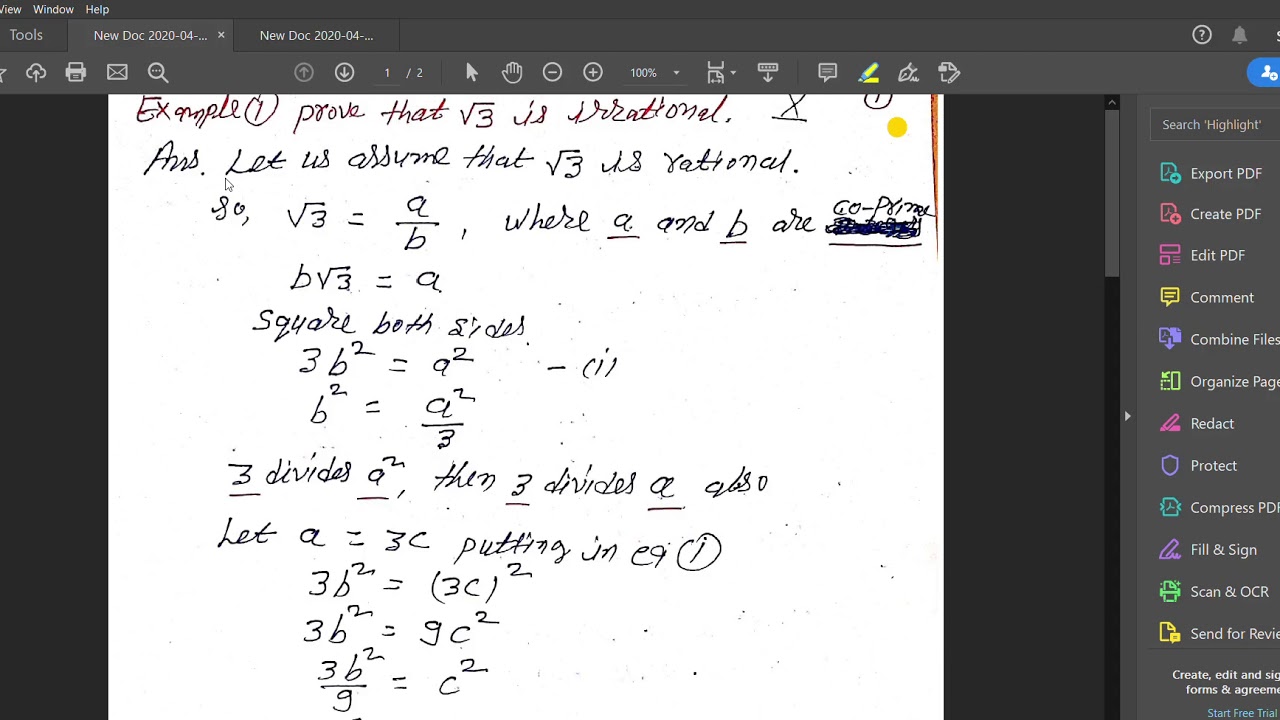 View Window Help
Tools New Doc 2020-04-... × New Doc 2020-04-...
1 / 2 100%
Example ① prove that √3 is irrational. X ①
Ans. Let us assume that √3 is rational.
So, √3 = a/b, where a and b are co-prime
b√3 = a
Square both sides.
3b² = a² - (i)
b² = a²/3
3 divides a², then 3 divides a also
Let a = 3c putting in eq ①
3b² = (3c)²
3b² = 9c²
3b²/9 = c²
Search 'Highlight'
Export PDF
Create PDF
Edit PDF
Comment
Combine Files
Organize Page
Redact
Protect
Compress PDF
Fill & Sign
Scan & OCR
Send for Revie
Create, edit and sig
forms & agreeme
Start Free Trial